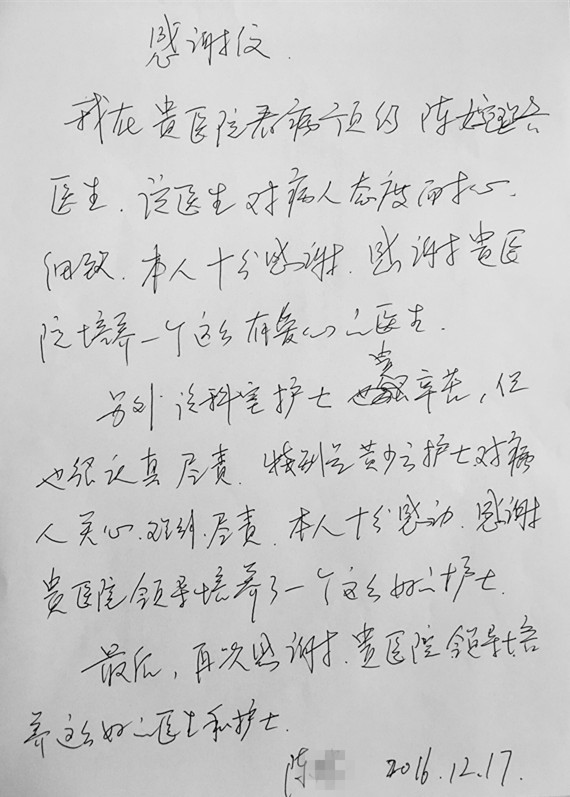 感谢信.
我在贵医院看病预约陈婉
医生.该医生对病人态度耐心.
细致.本人十分感谢.感谢贵医
院培养一个这么有爱心的医生.
另外该科室护士辛苦,但
也很认真尽责.特别是黄少云护士对病
人关心.尽责.本人十分感动.感谢
贵医院领导培养了一个这么好的护士.
最后,再次感谢.贵医院领导培
养这么好的医生和护士.
陈 2016.12.17.